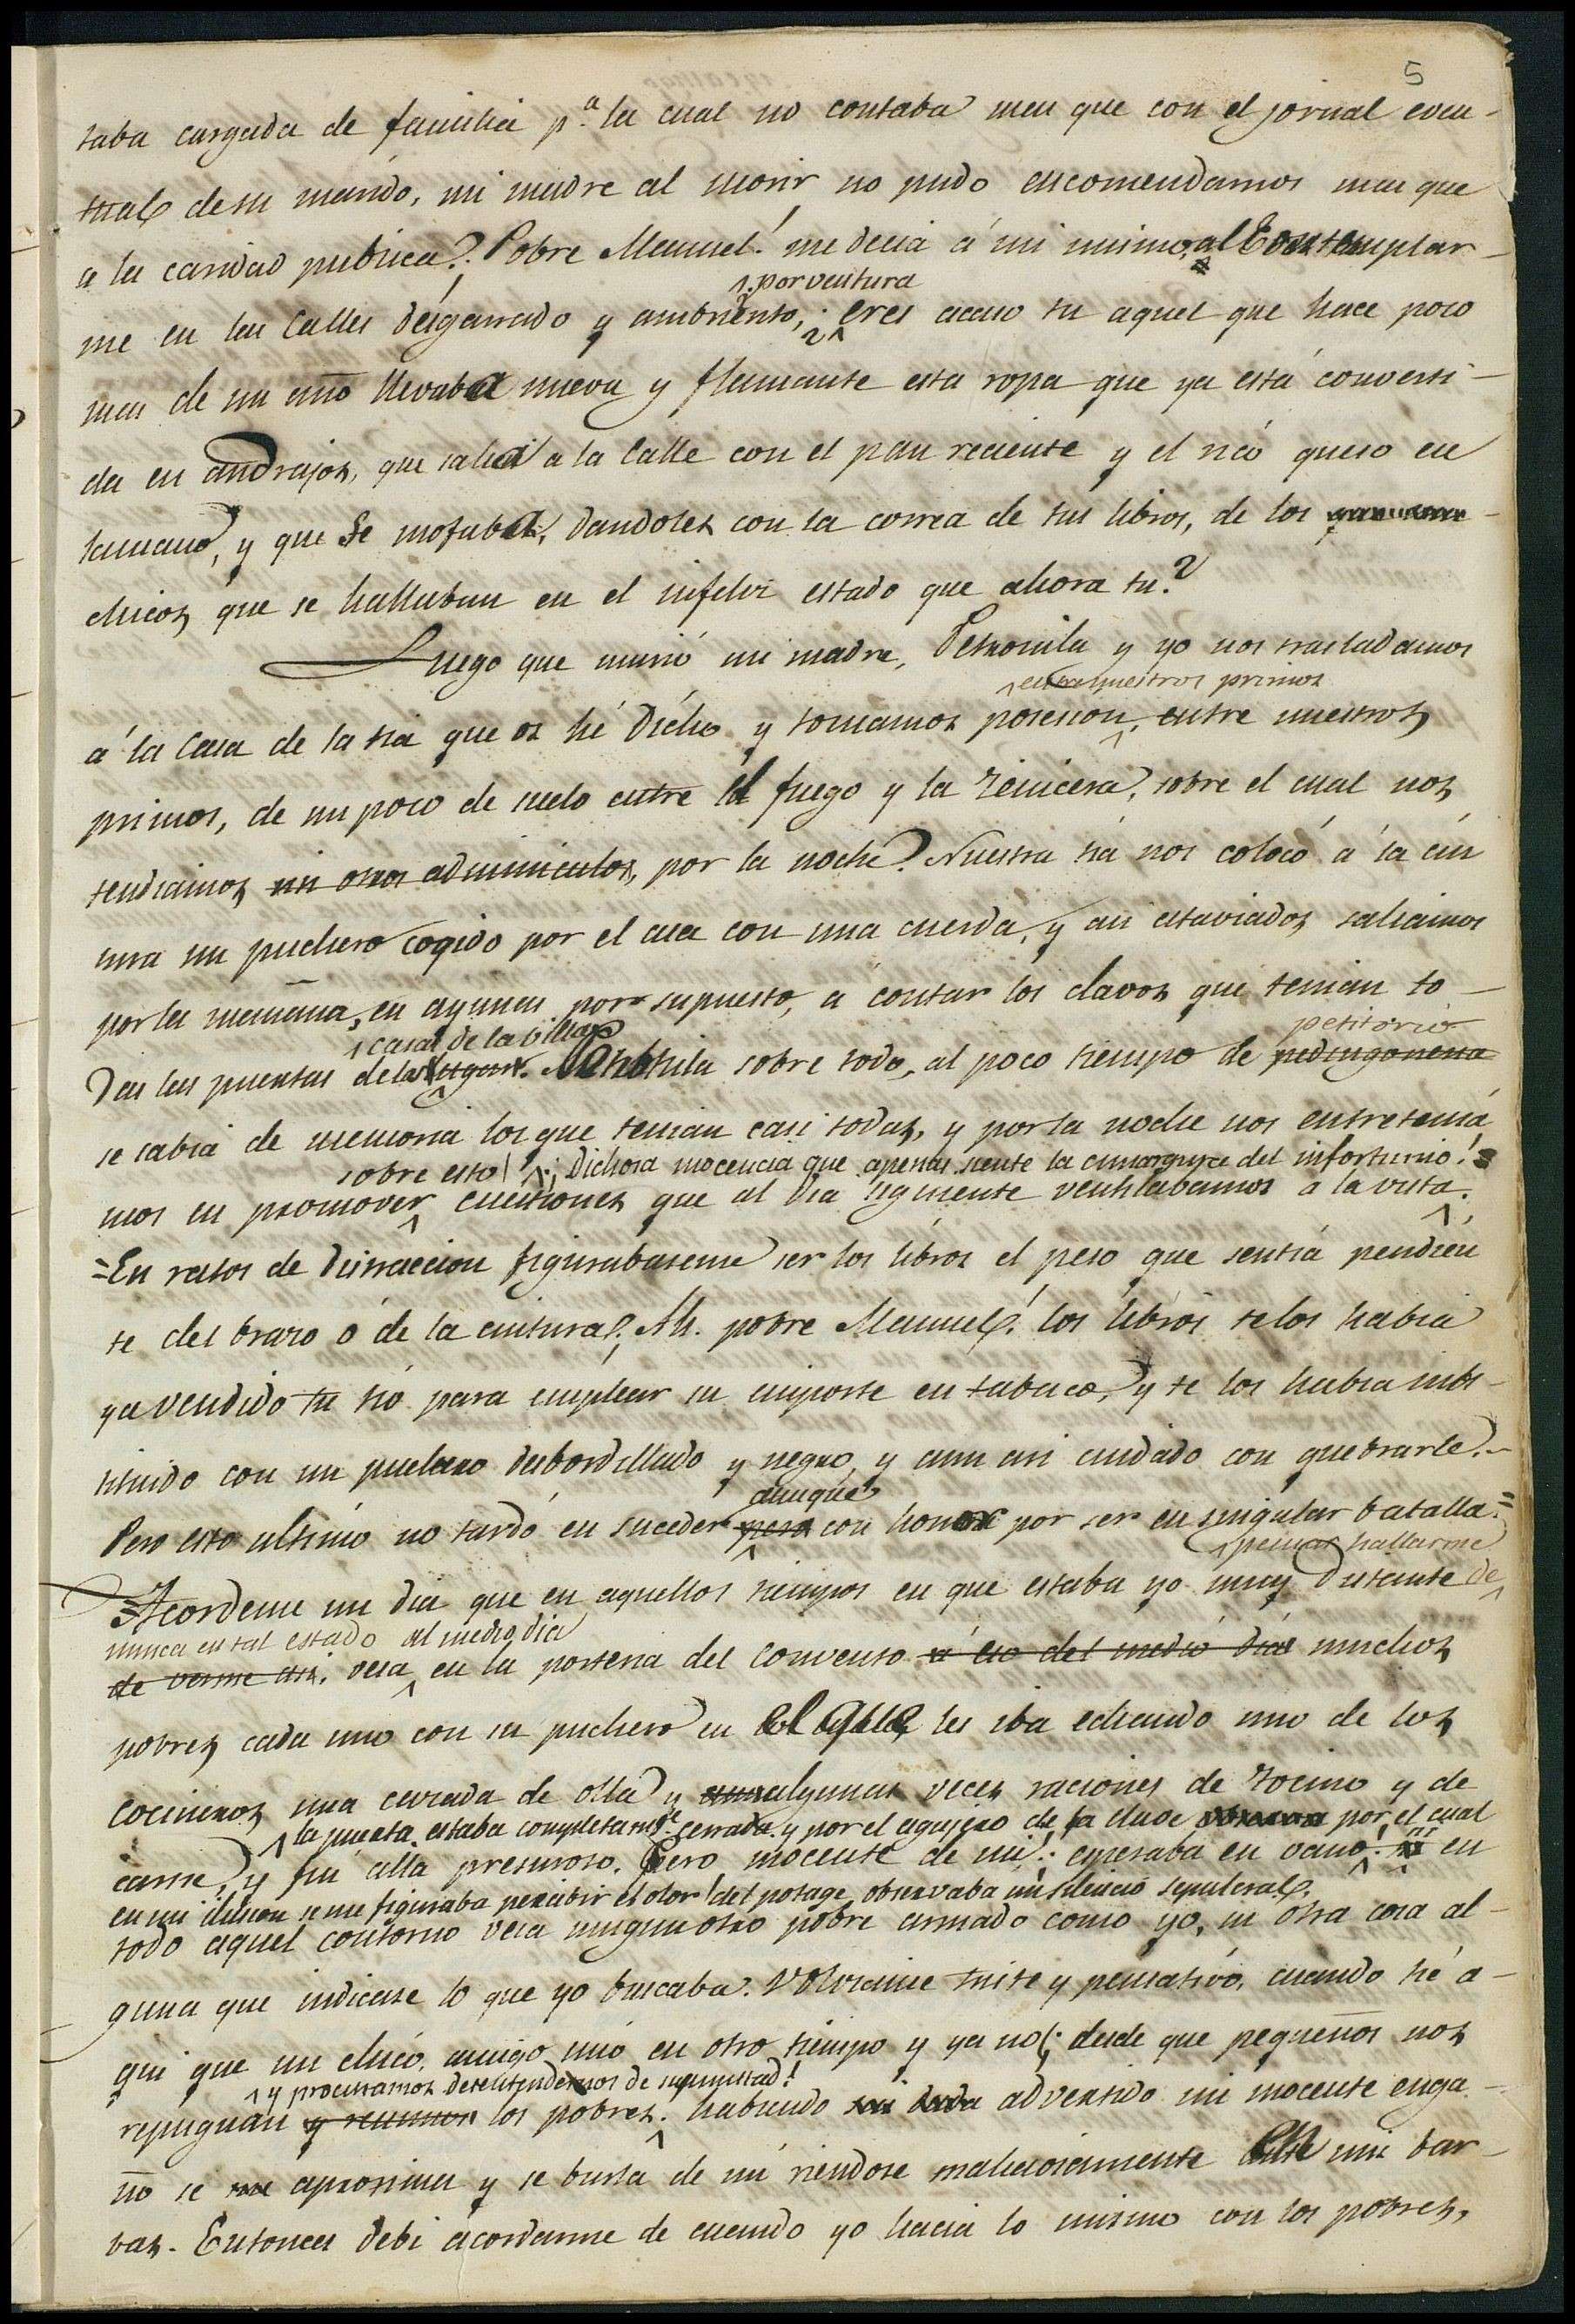 5
taba cargada de familia p.ª la cual no contaba mas que con el jornal even-
tual de su marido, mi madre al morir no pudo encomendarnos mas que
a la caridad publica? ¡Pobre Manuel! me decia á mi mismo, al contemplar-
¿por ventura
me en las calles desgarrado y ambriento, eres acaso tu aquel que hace poco
mas de un año llevaba nueva y flamante esta ropa que ya está converti-
da en andrajos, que salia a la calle con el pan reciente y el rico queso en
la mano, y que se mofaba, dandoles con la correa de tus libros, de los
chicos que se hallaban en el infeliz estado que ahora tu?
Luego que murió mi madre, Petronila y yo nos trasladamos
entre nuestros primos
á la casa de la tia que os hé dicho y tomamos posesion, entre nuestros
primos, de un poco de suelo entre el fuego y la zenicera, sobre el cual nos
tendiamos sin otros adminiculos, por la noche. Nuestra tia nos colocó á la cin
tura un puchero cogido por el asa con una cuerda, y asi ataviados saliamos
por la mañana, en ayunas por supuesto, á contar los clavos que tenian to-
casas de la villa petitorio
das las puertas de las Petronila sobre todo, al poco tiempo de pedingoneria
se sabia de memoria los que tenian casi todas, y por la noche nos entretenia
sobre esto ¡Dichosa inocencia que apenas siente la amargura del infortunio!
mos en promover cuestiones que al dia siguiente ventilabamos a la vista.
=En ratos de distraccion figurabaseme ser los libros el peso que sentia pendien
te del brazo ó de la cintura. ¡Ah. pobre Manuel! los libros te los habia
ya vendido tu tio para emplear su importe en tabaco, y te los habia subs-
tituido con un puchero desbordillado y negro, y aun asi cuidado con quebrarle.
aunque
Pero esto ultimo no tardó en suceder pero con honor por ser en singular batalla.=
pensar hallarme
Acordeme un dia que en aquellos tiempos en que estaba yo muy distante de
nunca en tal estado al medio dia
de verme asi, veia en la porteria del convento á eso del medio dia muchos
pobres cada uno con su puchero en el que les iba echando uno de los
cocineros una cazada de olla y algunas veces raciones de tocino y de
la puerta estaba completam.te cerrada y por el agujero de la llave por el cual
carne, y fui alla presuroso. Pero inocente de mi! esperaba en vano! en
en mi ilusion se me figuraba percibir el olor del potage, observaba un silencio sepulcral.
todo aquel contorno veia ningun otro pobre armado como yo, ni otra cosa al-
guna que indicase lo que yo buscaba. Volviame triste y pensativo, cuando hé a-
qui que un chico, amigo mio en otro tiempo y ya no, desde que pequeños nos
y procuramos desentendernos de su amistad!
repugnan los pobres. habiendo advertido mi inocente enga-
ño se aproxima y se burla de mi riendose maliciosamente mis bar-
bas. Entonces debi acordarme de cuando yo hacia lo mismo con los pobres,